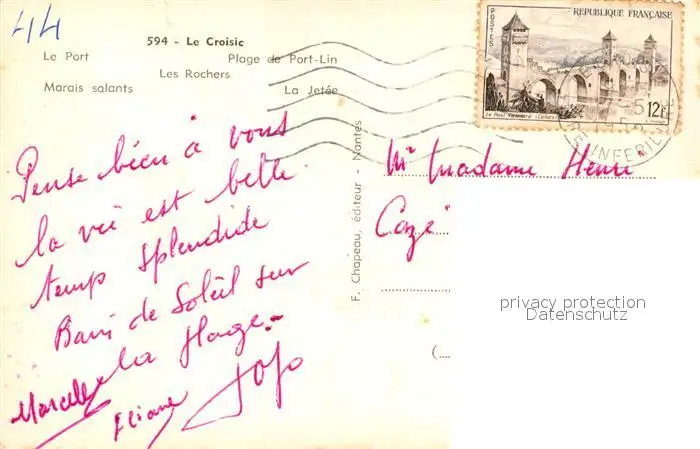 44
594 - Le Croisic
Le Port
Plage de Port-Lin
Les Rochers
Marais salants
La Jetée
Pense bien à vous
la vie est belle
temps splendide
Bain de Soleil sur
la plage.
Marcelle
Eliane
Jojo
F. Chapeau, éditeur - Nantes
REPUBLIQUE FRANÇAISE
POSTES
12F
Le Pont Valentré (Cahors)
RE INFERIEURE
Mr Madame Henri
Cazé
privacy protection
Datenschutz
(...